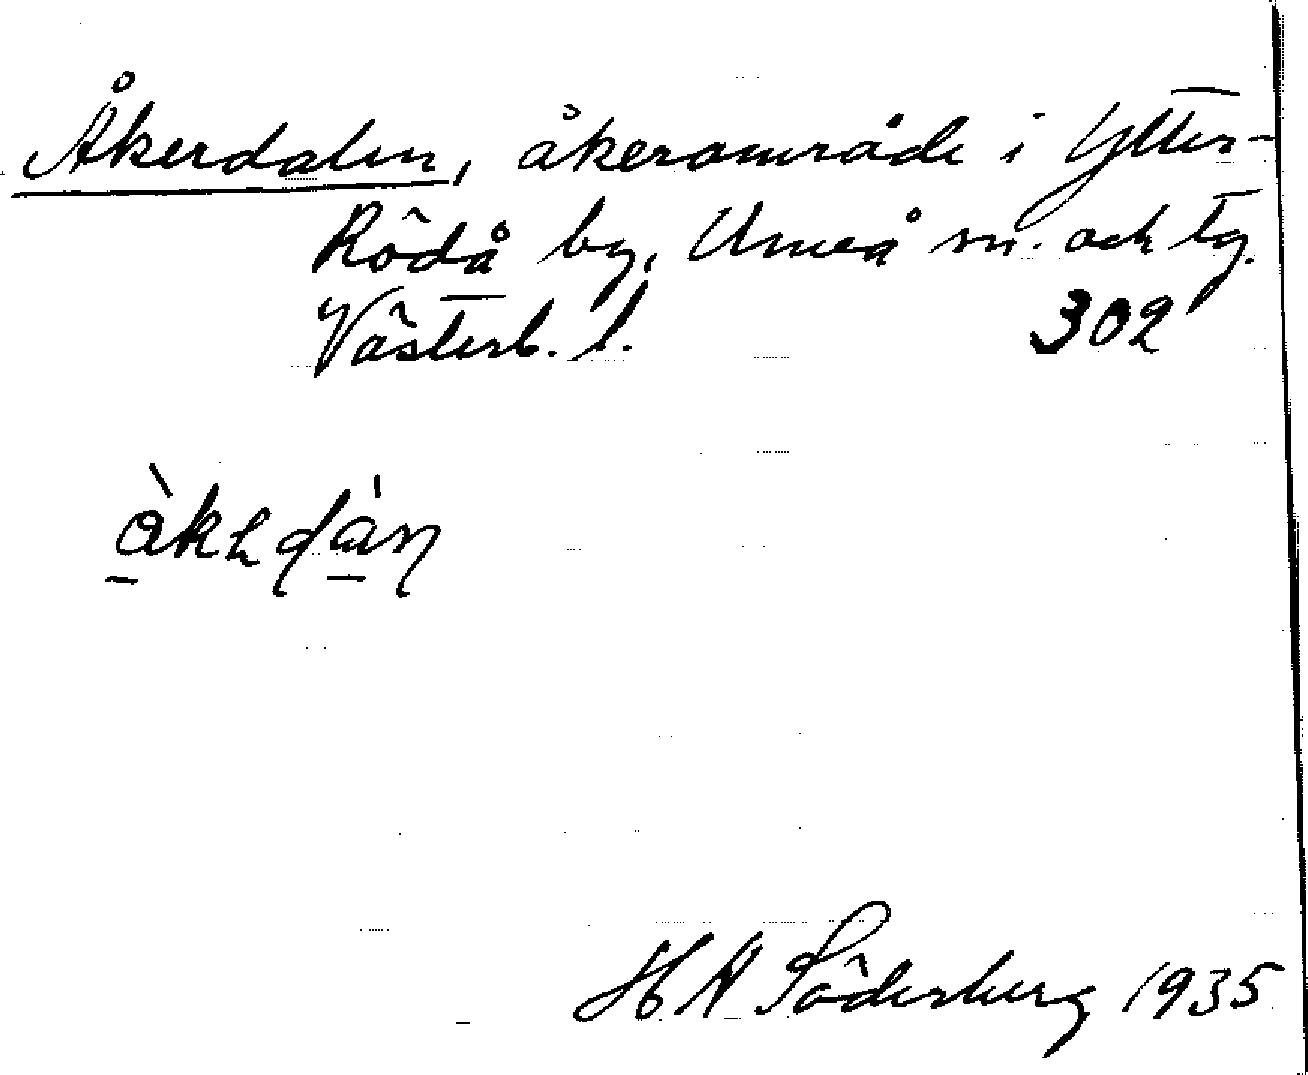 Åkerdalen, åkerområde i Ytter-
Rödå by, Umeå sn. och tg.
Västerb. l. 302
H A Söderberg 1935